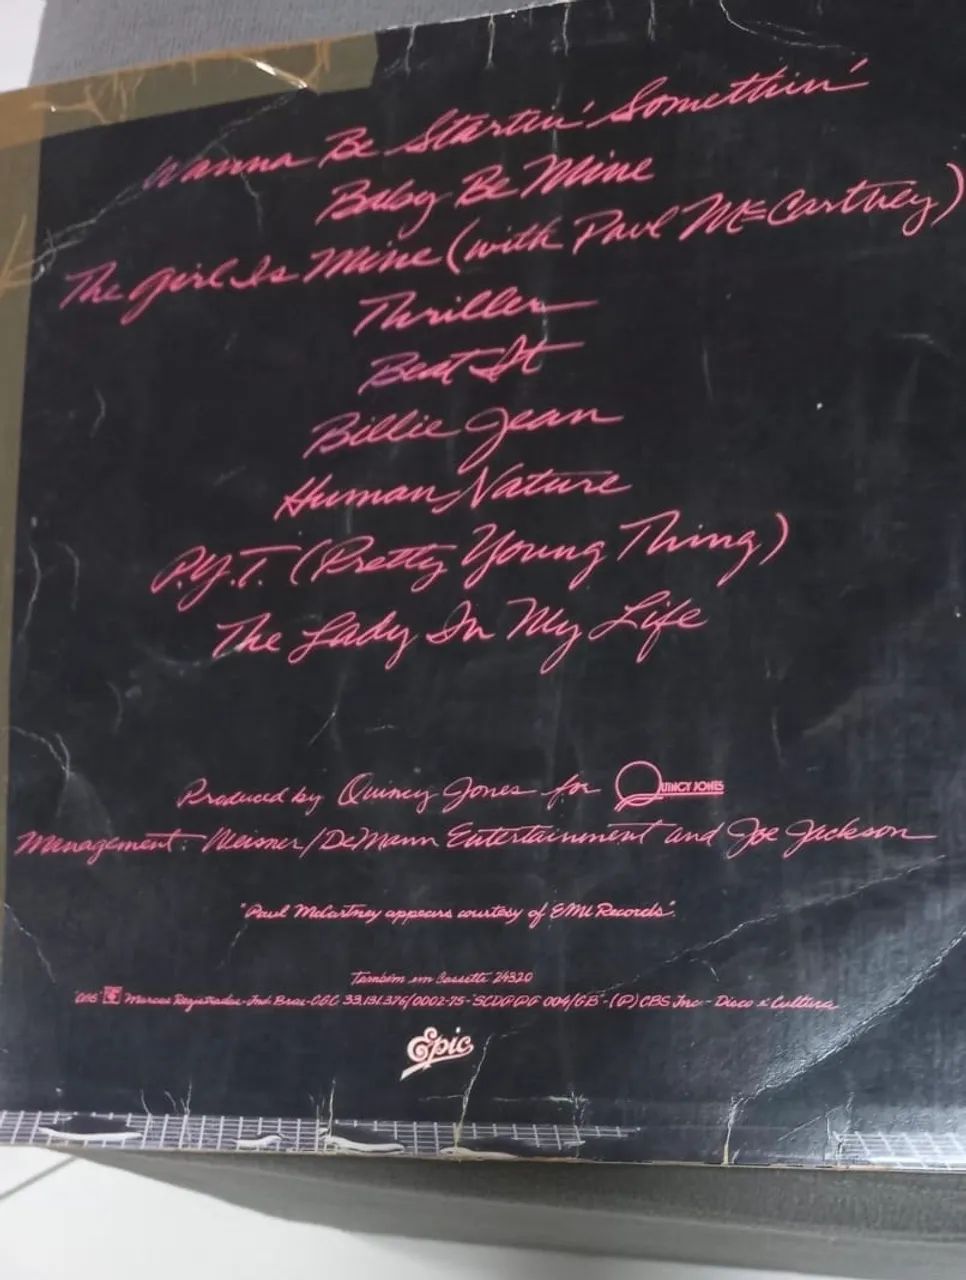 Wanna Be Startin' Somethin'
Baby Be Mine
The Girl Is Mine (with Paul McCartney)
Thriller
Beat It
Billie Jean
Human Nature
P.Y.T. (Pretty Young Thing)
The Lady In My Life
Produced by Quincy Jones for QUINCY JONES
Management: Weisner/DeMann Entertainment and Joe Jackson
"Paul McCartney appears courtesy of EMI Records".
Também em Cassette 24320
CBS Marcas Registradas - Ind. Bras - CGC 33.131.376/0002-75 - SCDP DPF 004/GB - (P) CBS Inc - Disco é Cultura
Epic